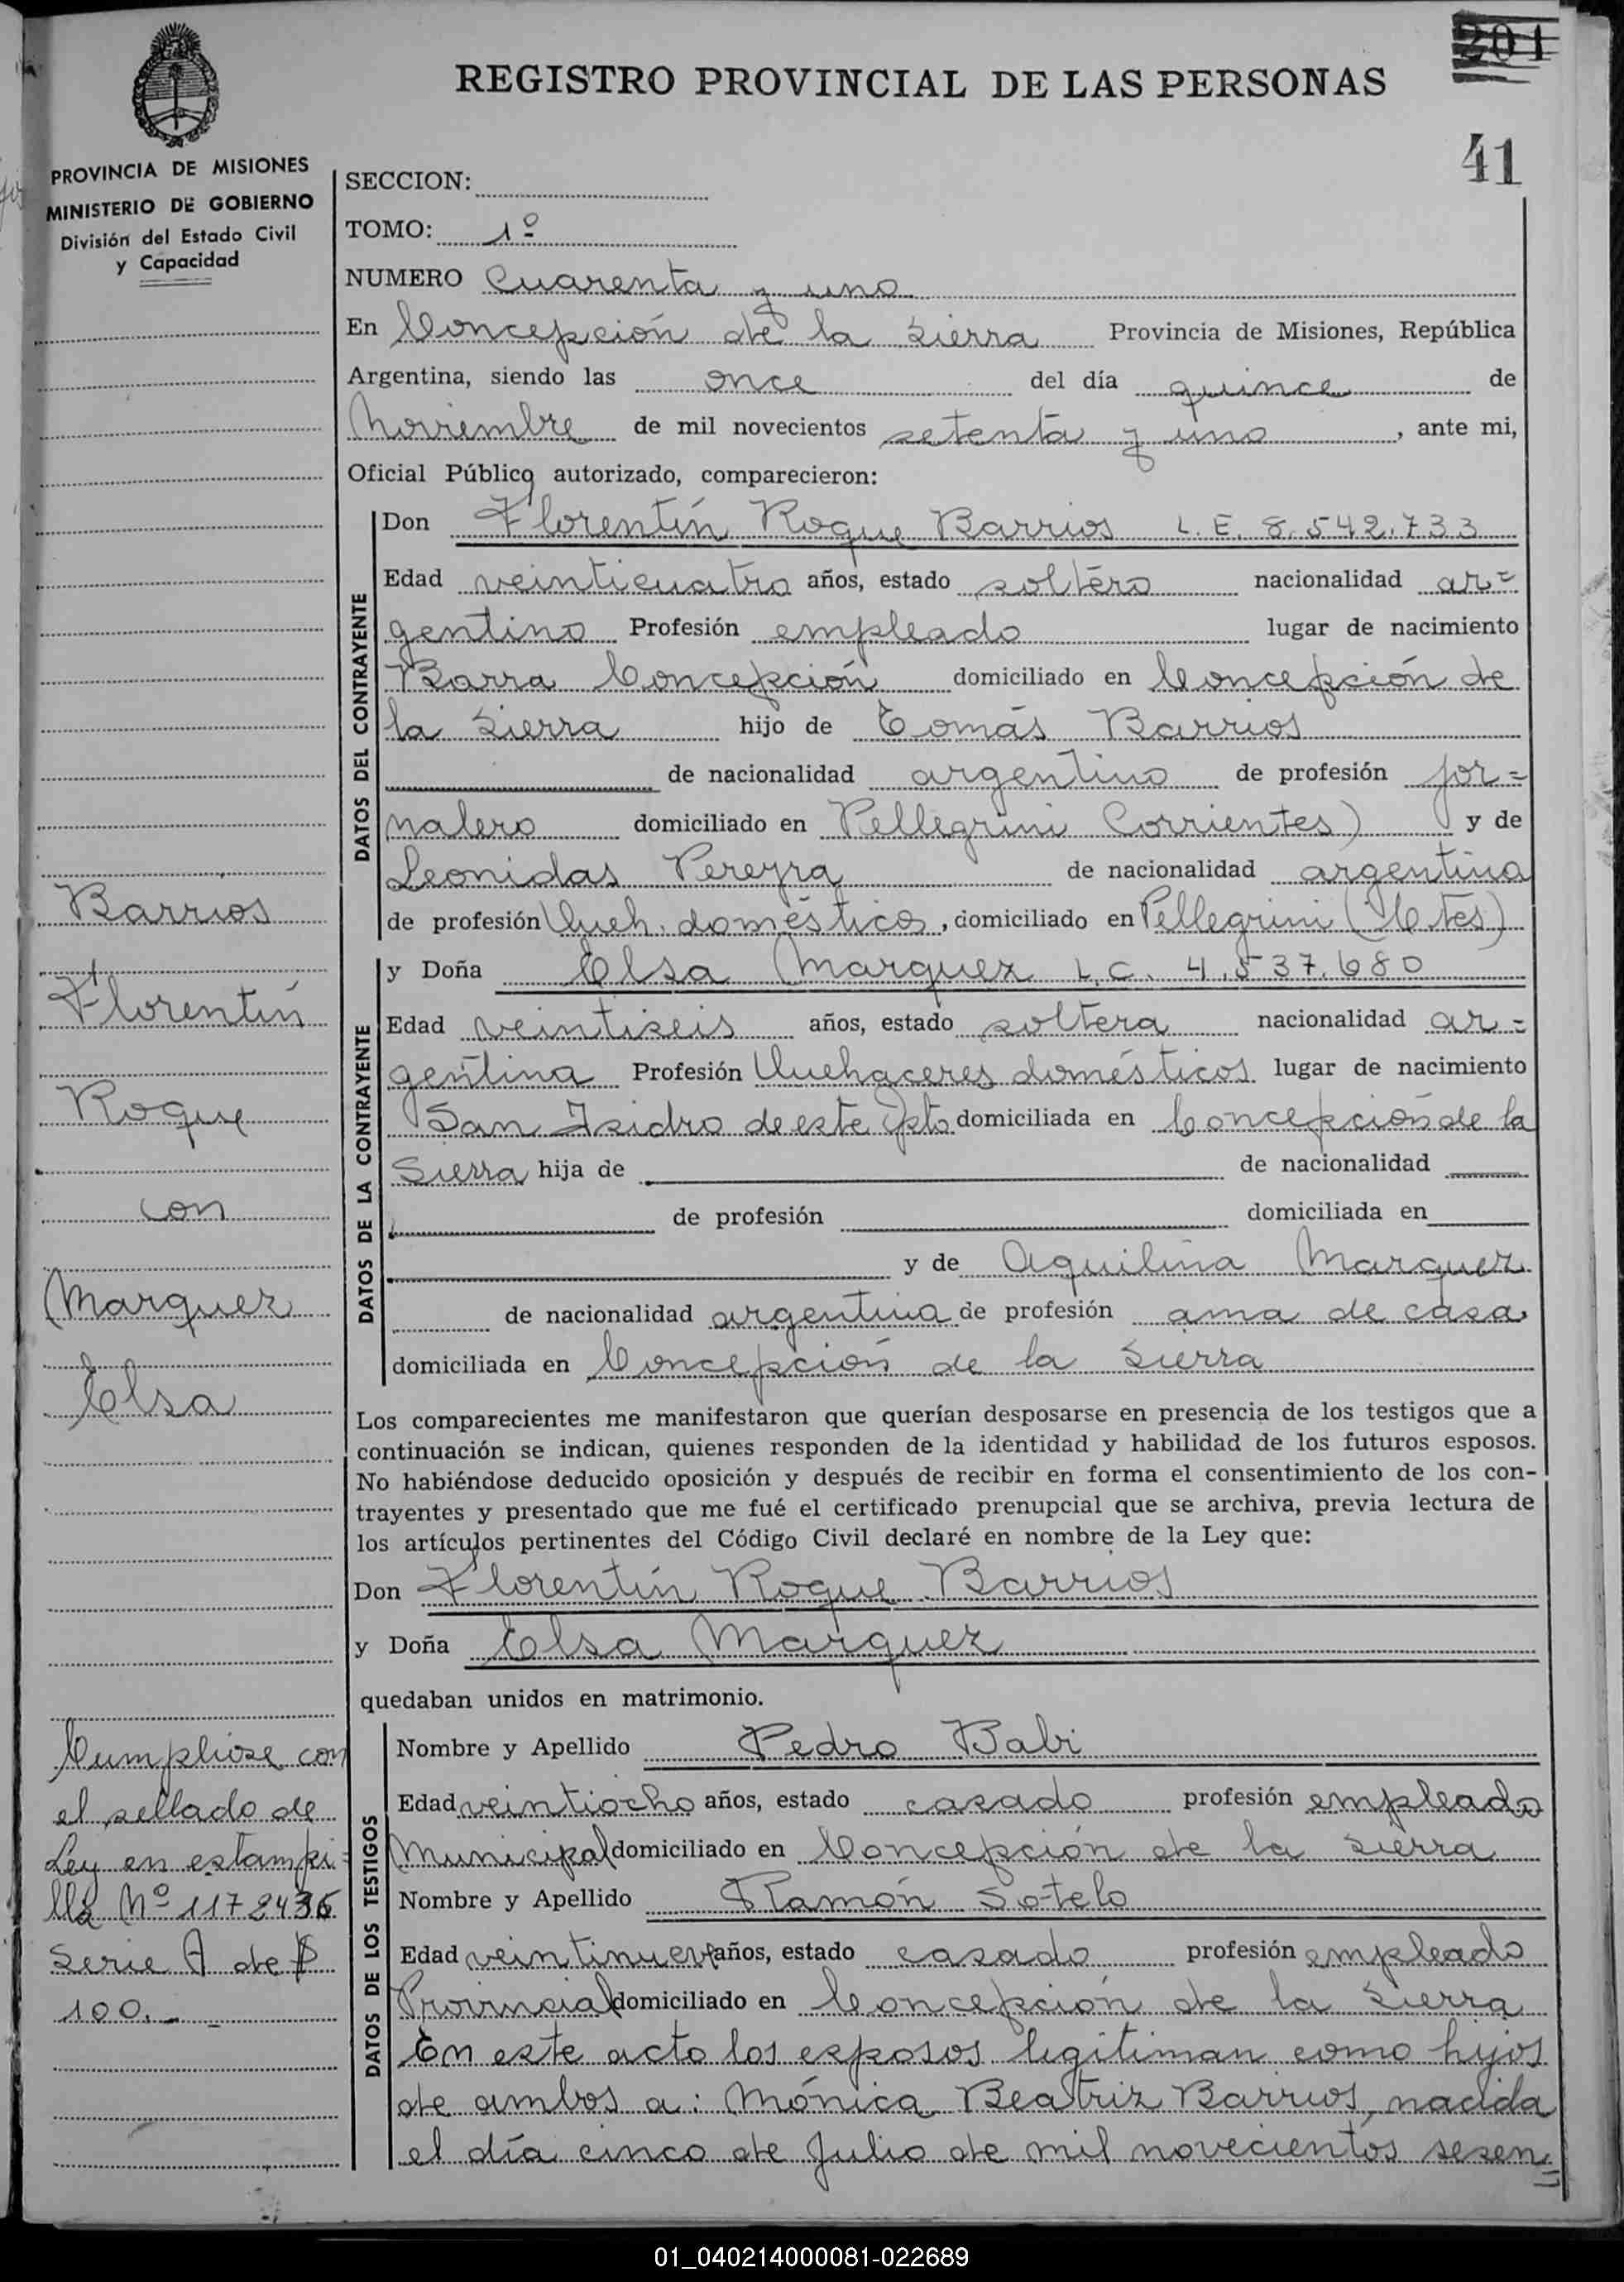 201
REGISTRO PROVINCIAL DE LAS PERSONAS
41
PROVINCIA DE MISIONES
MINISTERIO DE GOBIERNO
División del Estado Civil
y Capacidad
SECCION:
TOMO: 1º
NUMERO Cuarenta y uno
En Concepción de la Sierra Provincia de Misiones, República
Argentina, siendo las once del día quince de
Noviembre de mil novecientos setenta y uno, ante mi,
Oficial Público autorizado, comparecieron:
DATOS DEL CONTRAYENTE
Don Florentín Roque Barrios L.E. 8.542.733
Edad veinticuatro años, estado soltero nacionalidad ar=
gentino Profesión empleado lugar de nacimiento
Barra Concepción domiciliado en Concepción de
la Sierra hijo de Tomás Barrios
de nacionalidad argentino de profesión jor=
nalero domiciliado en Pellegrini Corrientes) y de
Leonidas Pereyra de nacionalidad argentina
de profesión Queh. domésticos, domiciliado en Pellegrini (Ctes)
DATOS DE LA CONTRAYENTE
y Doña Elsa Marquez L.C. 4.537.680
Edad veintiseis años, estado soltera nacionalidad ar=
gentina Profesión Quehaceres domésticos lugar de nacimiento
San Isidro de este Dpto domiciliada en Concepción de la
Sierra hija de de nacionalidad
de profesión domiciliada en
y de Aquilina Marquez
de nacionalidad argentina de profesión ama de casa
domiciliada en Concepción de la Sierra
Los comparecientes me manifestaron que querían desposarse en presencia de los testigos que a
continuación se indican, quienes responden de la identidad y habilidad de los futuros esposos.
No habiéndose deducido oposición y después de recibir en forma el consentimiento de los con-
trayentes y presentado que me fué el certificado prenupcial que se archiva, previa lectura de
los artículos pertinentes del Código Civil declaré en nombre de la Ley que:
Don Florentín Roque Barrios
y Doña Elsa Marquez
quedaban unidos en matrimonio.
DATOS DE LOS TESTIGOS
Nombre y Apellido Pedro Babi
Edad veintiocho años, estado casado profesión empleado
Municipal domiciliado en Concepción de la Sierra
Nombre y Apellido Ramón Sotelo
Edad veintinueve años, estado casado profesión empleado
Provincial domiciliado en Concepción de la Sierra
En este acto los esposos legitiman como hijos
de ambos a: Mónica Beatriz Barrios, nacida
el día cinco de Julio de mil novecientos sesen=
Barrios
Florentín
Roque
con
Marquez
Elsa
Cumpliose con
el sellado de
Ley en estampi=
lla Nº 1172436
Serie A de $
100.-
01_040214000081-022689